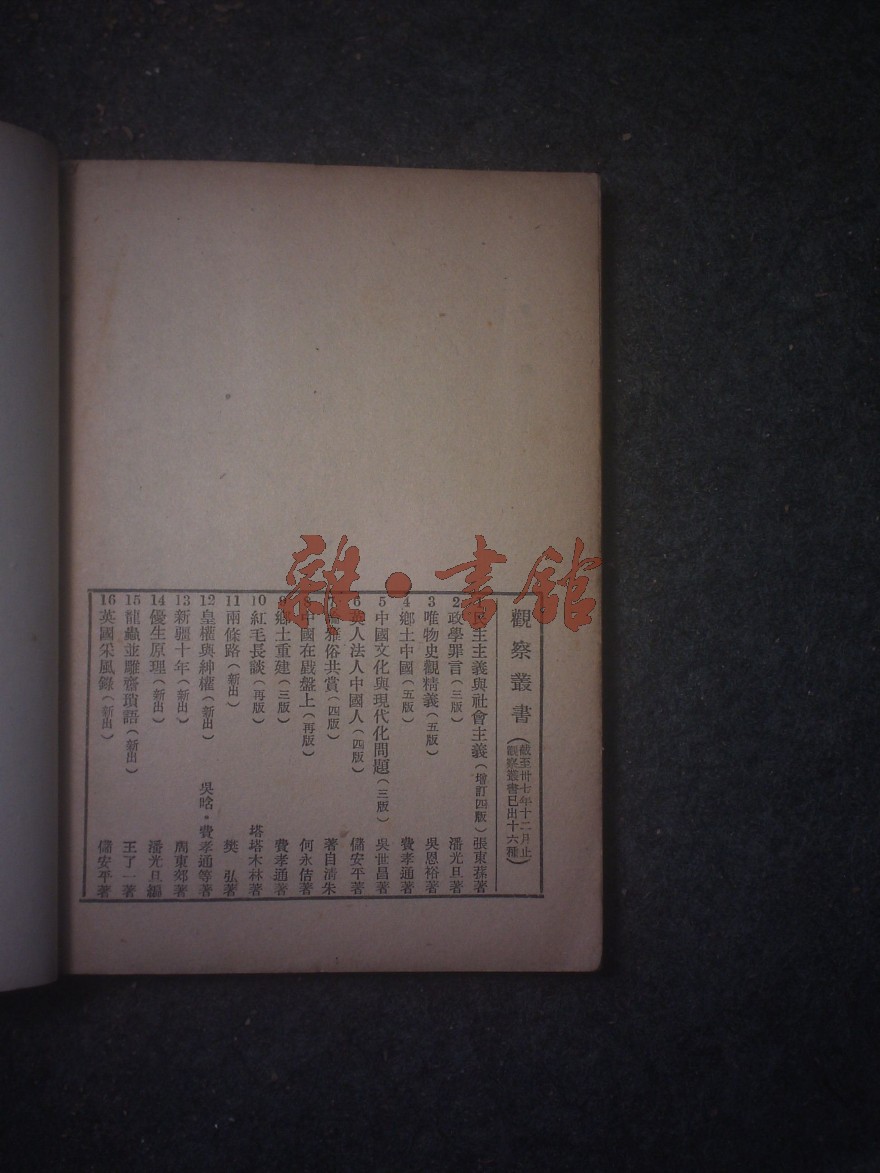 觀察叢書(截至卅七年十二月止觀察叢書已出十六種)
民主主義與社會主義(增訂四版)張東蓀著
2 政學罪言(三版) 潘光旦著
3 唯物史觀精義(五版) 吳恩裕著
4 鄉土中國(五版) 費孝通著
5 中國文化與現代化問題(三版) 吳世昌著
6 英人法人中國人(四版) 儲安平著
雅俗共賞(四版) 著自清朱
中國在戲盤上(再版) 何永佶著
鄉土重建(三版) 費孝通著
10 紅毛長談(再版) 塔塔木林著
11 兩條路(新出) 樊弘著
12 皇權與紳權(新出) 吳晗·費孝通等著
13 新疆十年(新出) 周東郊著
14 優生原理(新出) 潘光旦編
15 龍蟲並雕齋瑣語(新出) 王了一著
16 英國采風錄(新出) 儲安平著
雜·書館